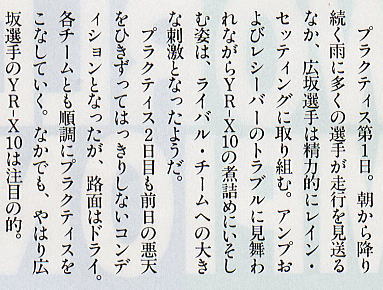 プラクティス第1日。朝から降り
続く雨に多くの選手が走行を見送る
なか、広坂選手は精力的にレイン・
セッティングに取り組む。アンプお
よびレシーバーのトラブルに見舞わ
れながらYR-X10の煮詰めにいそし
む姿は、ライバル・チームへの大き
な刺激となったようだ。
プラクティス2日目も前日の悪天
をひきずってはっきりしないコンデ
ィションとなったが、路面はドライ。
各チームとも順調にプラクティスを
こなしていく。なかでも、やはり広
坂選手のYR-X10は注目の的。